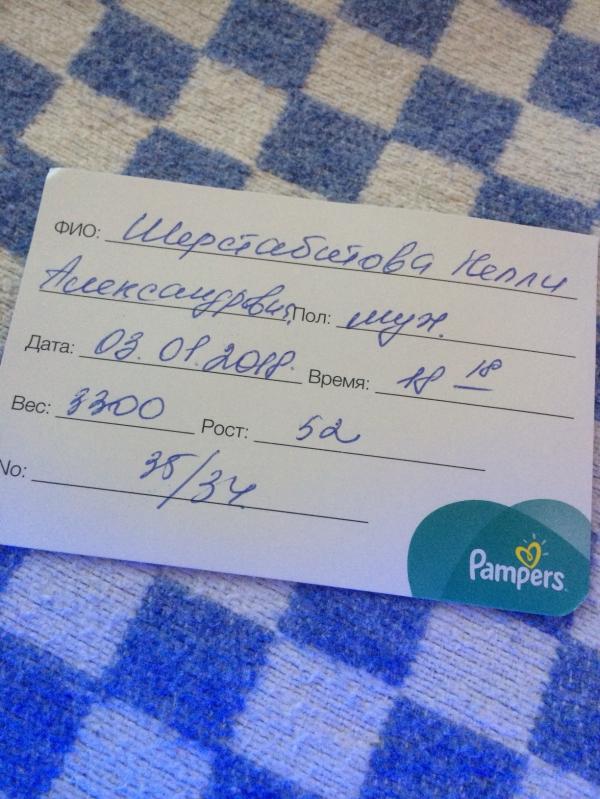 ФИО: Шерстабитова Нелли
Александровна Пол: муж.
Дата: 03.01.2018. Время: 18 18
Вес: 3300 Рост: 52
No: 35/34
Pampers